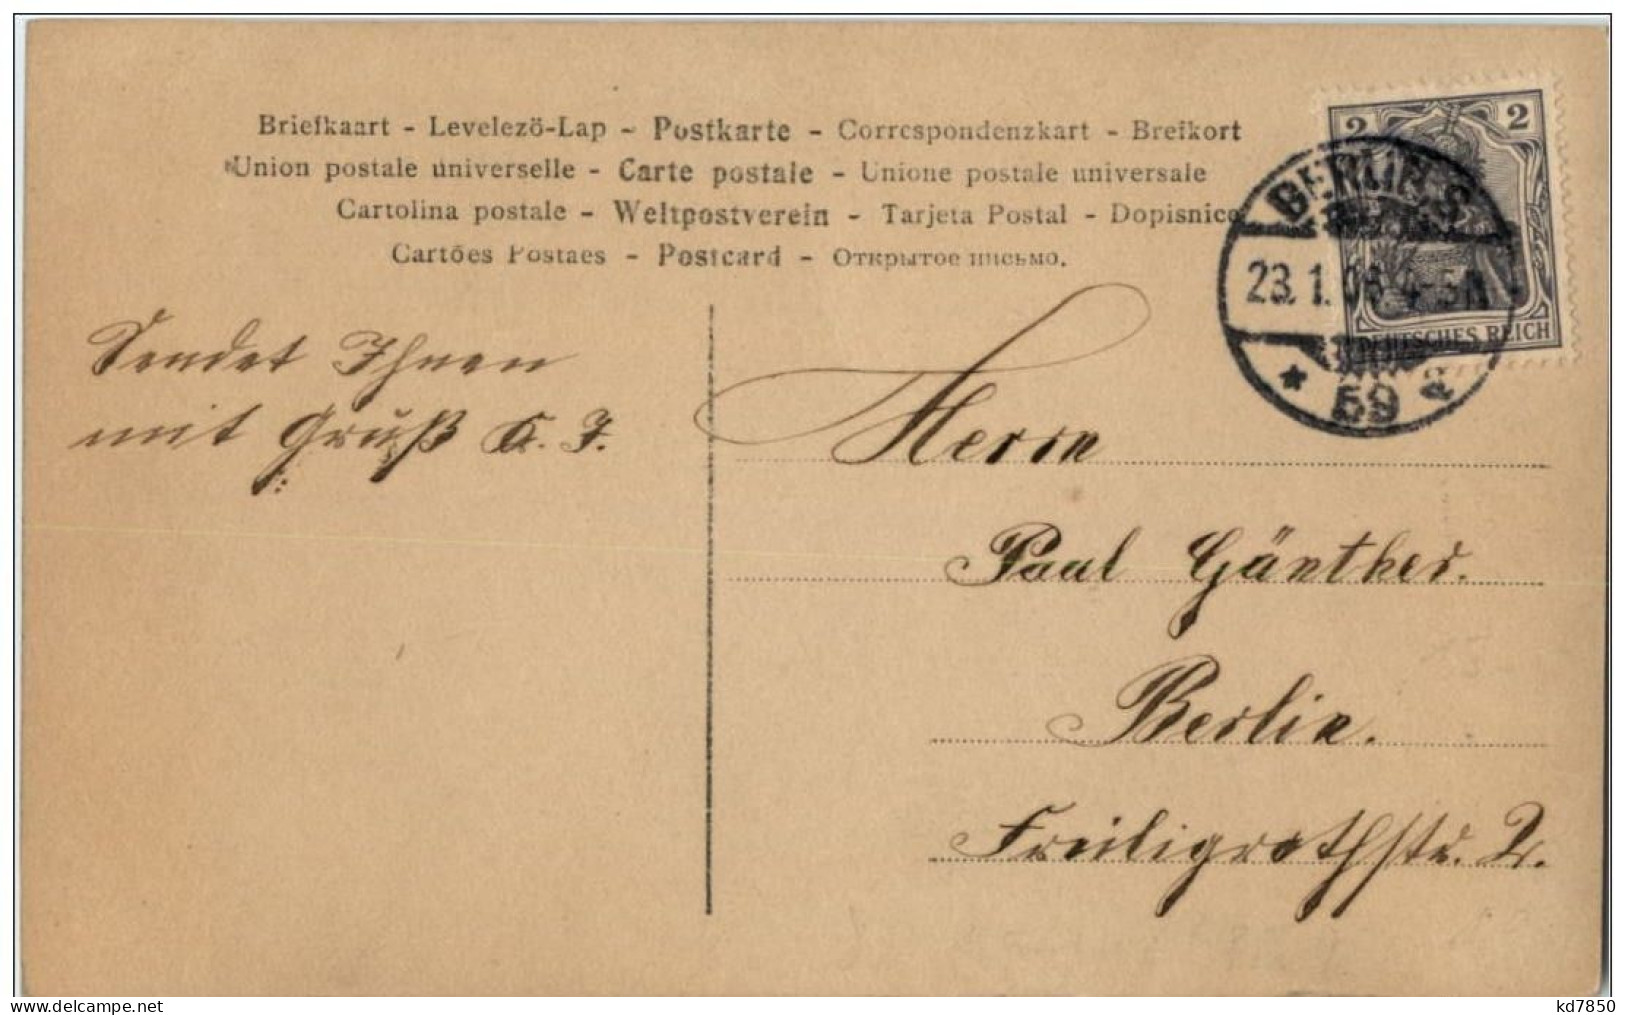 Briefkaart - Levelezö-Lap - Postkarte - Correspondenzkart - Brefkort
Union postale universelle - Carte postale - Unione postale universale
Cartolina postale - Weltpostverein - Tarjeta Postal - Dopisnice
Cartões Postaes - Postcard - Открытое письмо.
2 2
DEUTSCHES REICH
BERLIN S.
23.1.06 4-5N
* 59 a
Sendet Ihnen
mit Gruß K. J.
Herrn
Paul Günther.
Berlin.
Freiligrathstr. 2.
www.delcampe.net
kd7850